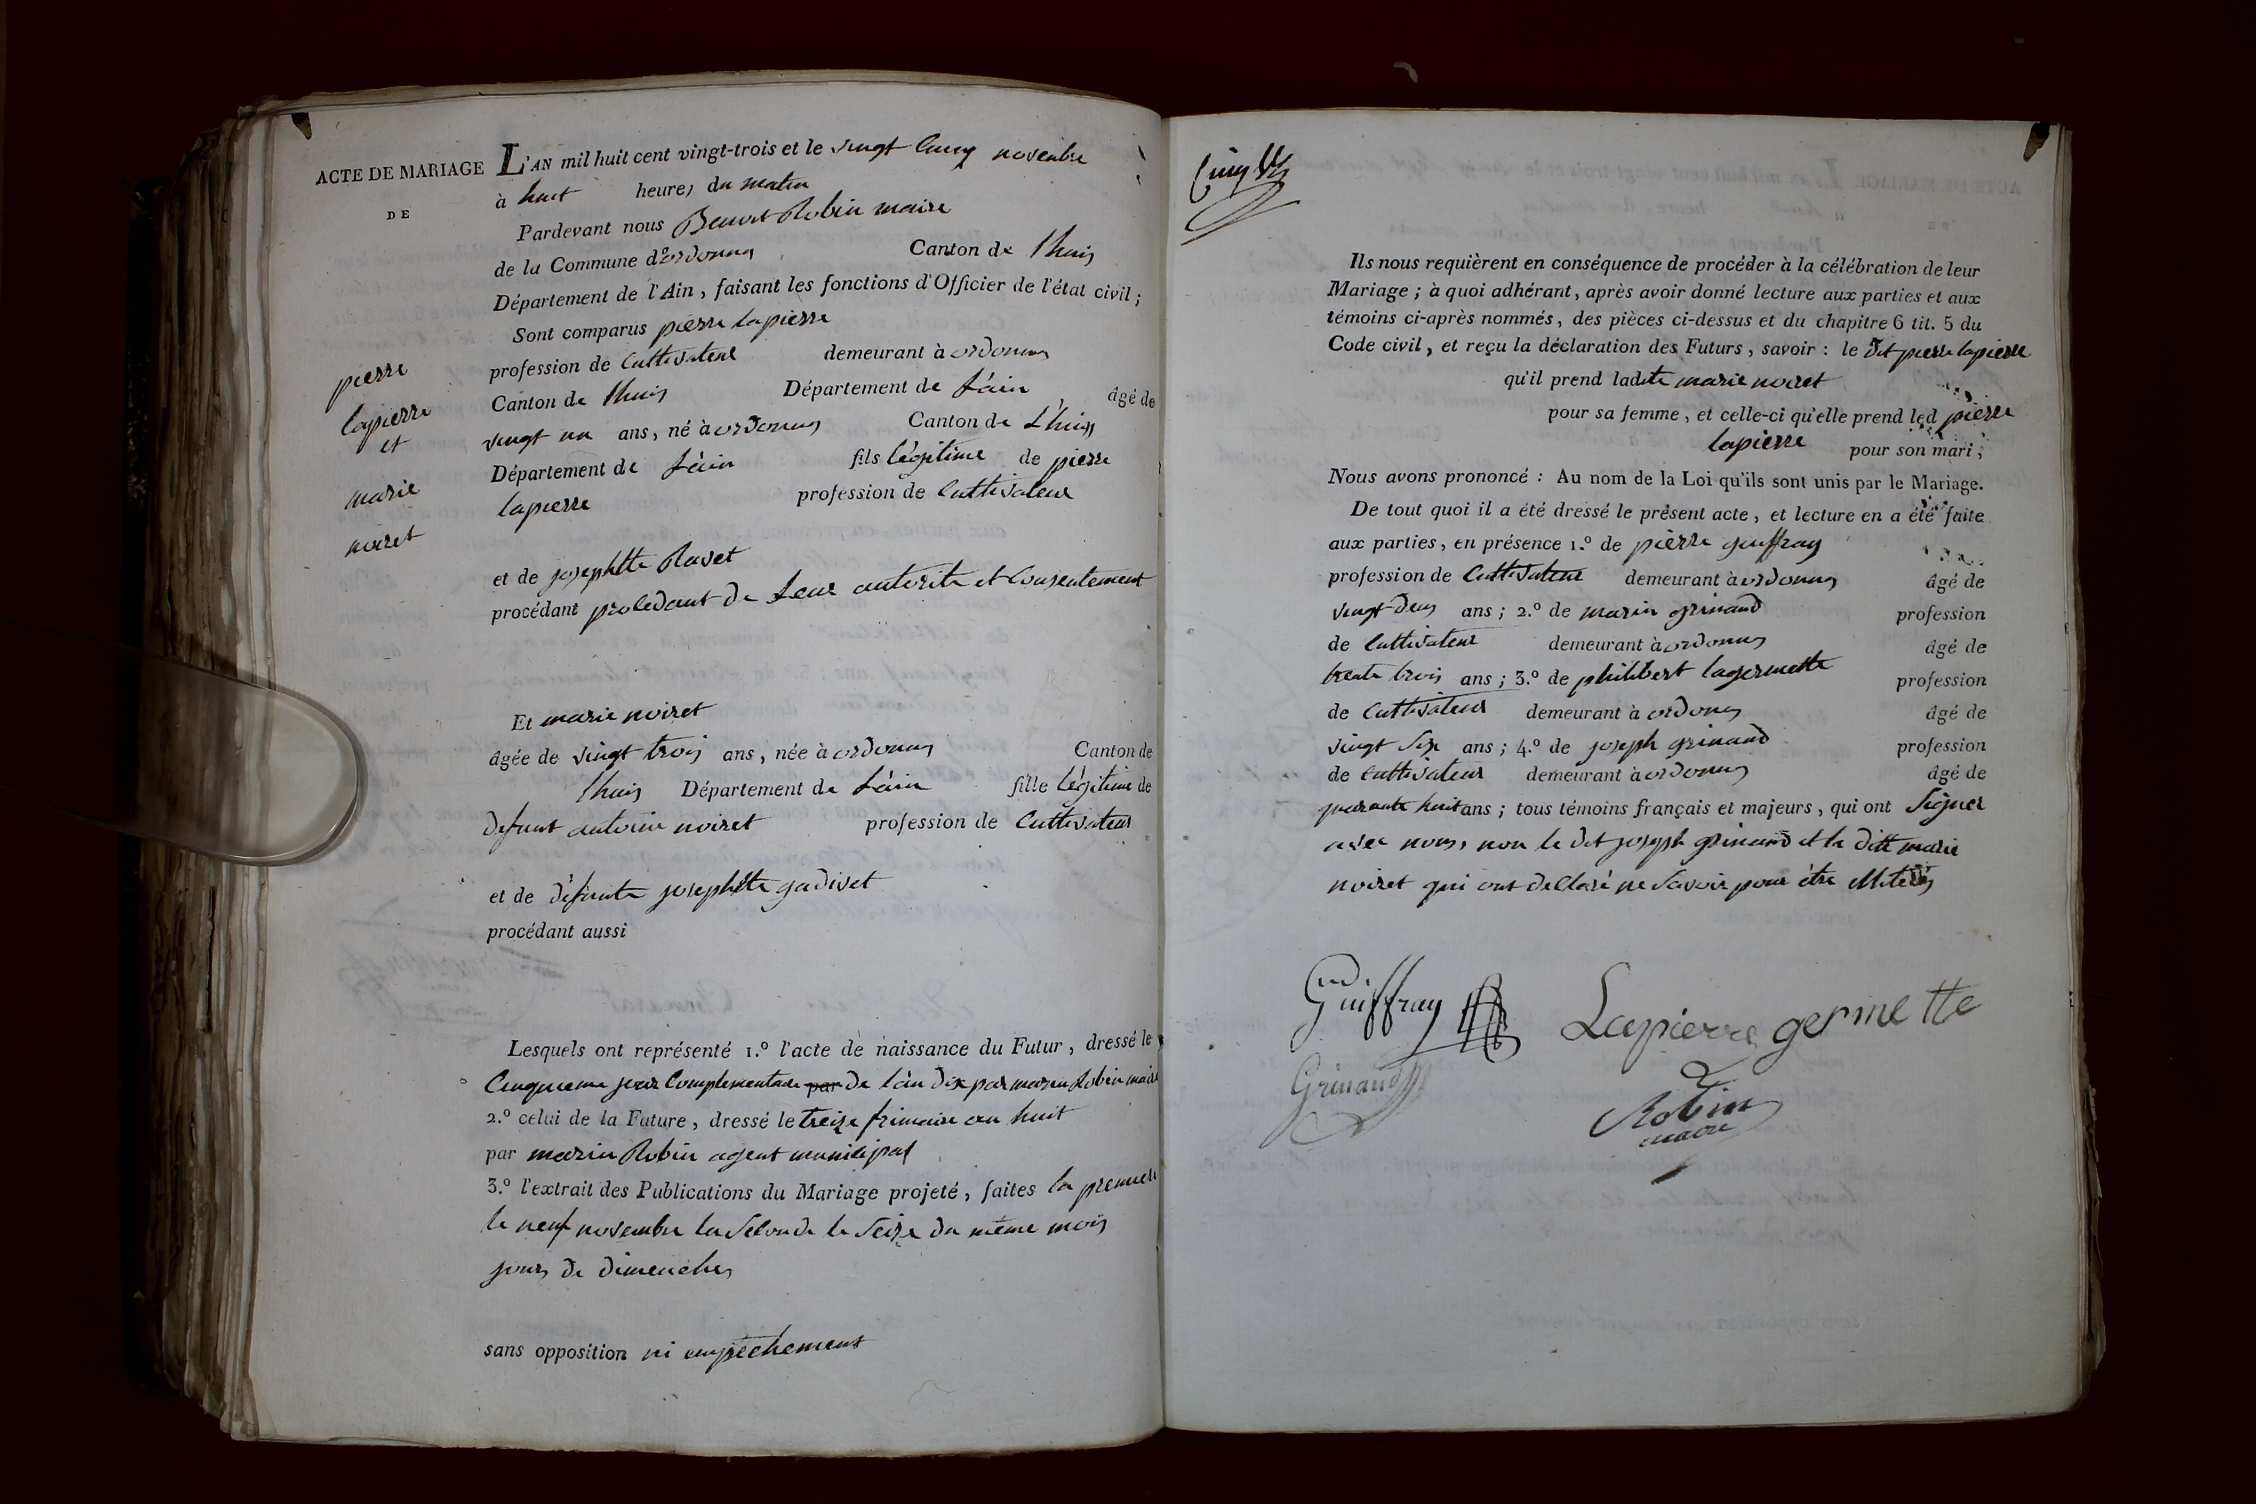 ACTE DE MARIAGE
DE
pierre
lapierre
et
marie
noiret
L'AN mil huit cent vingt-trois et le vingt cinq novenbre
à huit heures du matin
Pardevant nous Benoit Robin maire
de la Commune d'ordonnas Canton de Lhuis
Département de l'Ain, faisant les fonctions d'Officier de l'état civil;
Sont comparus pierre lapierre
profession de Cultivateur demeurant à ordonnas
Canton de Lhuis Département de L'ain âgé de
vingt un ans, né à ordonnas Canton de L'huis
Département de L'ain fils légitime de pierre
lapierre profession de Cultivateur
et de josephtte Ravet
procédant procedant de Leur autorite et Consentement
Et marie noiret
âgée de vingt trois ans, née à ordonnas Canton de
Lhuis Département de L'ain fille légitime de
defunt antoine noiret profession de Cultivateur
et de défunte josephtte gadivet
procédant aussi
Lesquels ont représenté 1.º l'acte de naissance du Futur, dressé le
Cinquieme jour Complementaire par de l'an dix par marin Robin maire
2.º celui de la Future, dressé le treize frimaire an huit
par marin Robin agent municipal
3.º l'extrait des Publications du Mariage projeté, faites la premiere
le neuf novembre la Seconde le Seize du même mois
jours de dimenches
sans opposition ni empêchement
Ils nous requièrent en conséquence de procéder à la célébration de leur
Mariage; à quoi adhérant, après avoir donné lecture aux parties et aux
témoins ci-après nommés, des pièces ci-dessus et du chapitre 6 tit. 5 du
Code civil, et reçu la déclaration des Futurs, savoir: le dit pierre lapierre
qu'il prend ladite marie noiret
pour sa femme, et celle-ci qu'elle prend led pierre
lapierre pour son mari;
Nous avons prononcé: Au nom de la Loi qu'ils sont unis par le Mariage.
De tout quoi il a été dressé le présent acte, et lecture en a été faite
aux parties, en présence 1.º de pierre guiffray
profession de Cultivateur demeurant à ordonnas âgé de
vingt deux ans; 2.º de marin grinand profession
de Cultivateur demeurant à ordonnas âgé de
trente trois ans; 3.º de philibert lagermette profession
de Cultivateur demeurant à ordonnas âgé de
vingt Six ans; 4.º de joseph grinand profession
de Cultivateur demeurant à ordonnas âgé de
quarante huit ans; tous témoins français et majeurs, qui ont Signer
avec nous, non le dit joseph grinand et la ditte marie
noiret qui ont declaré ne Savoir pour être illiterés
Guiffray Lapierre germette
Grinand
Robin
maire